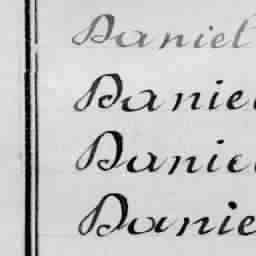 Daniel
Daniel
Daniel
Danie